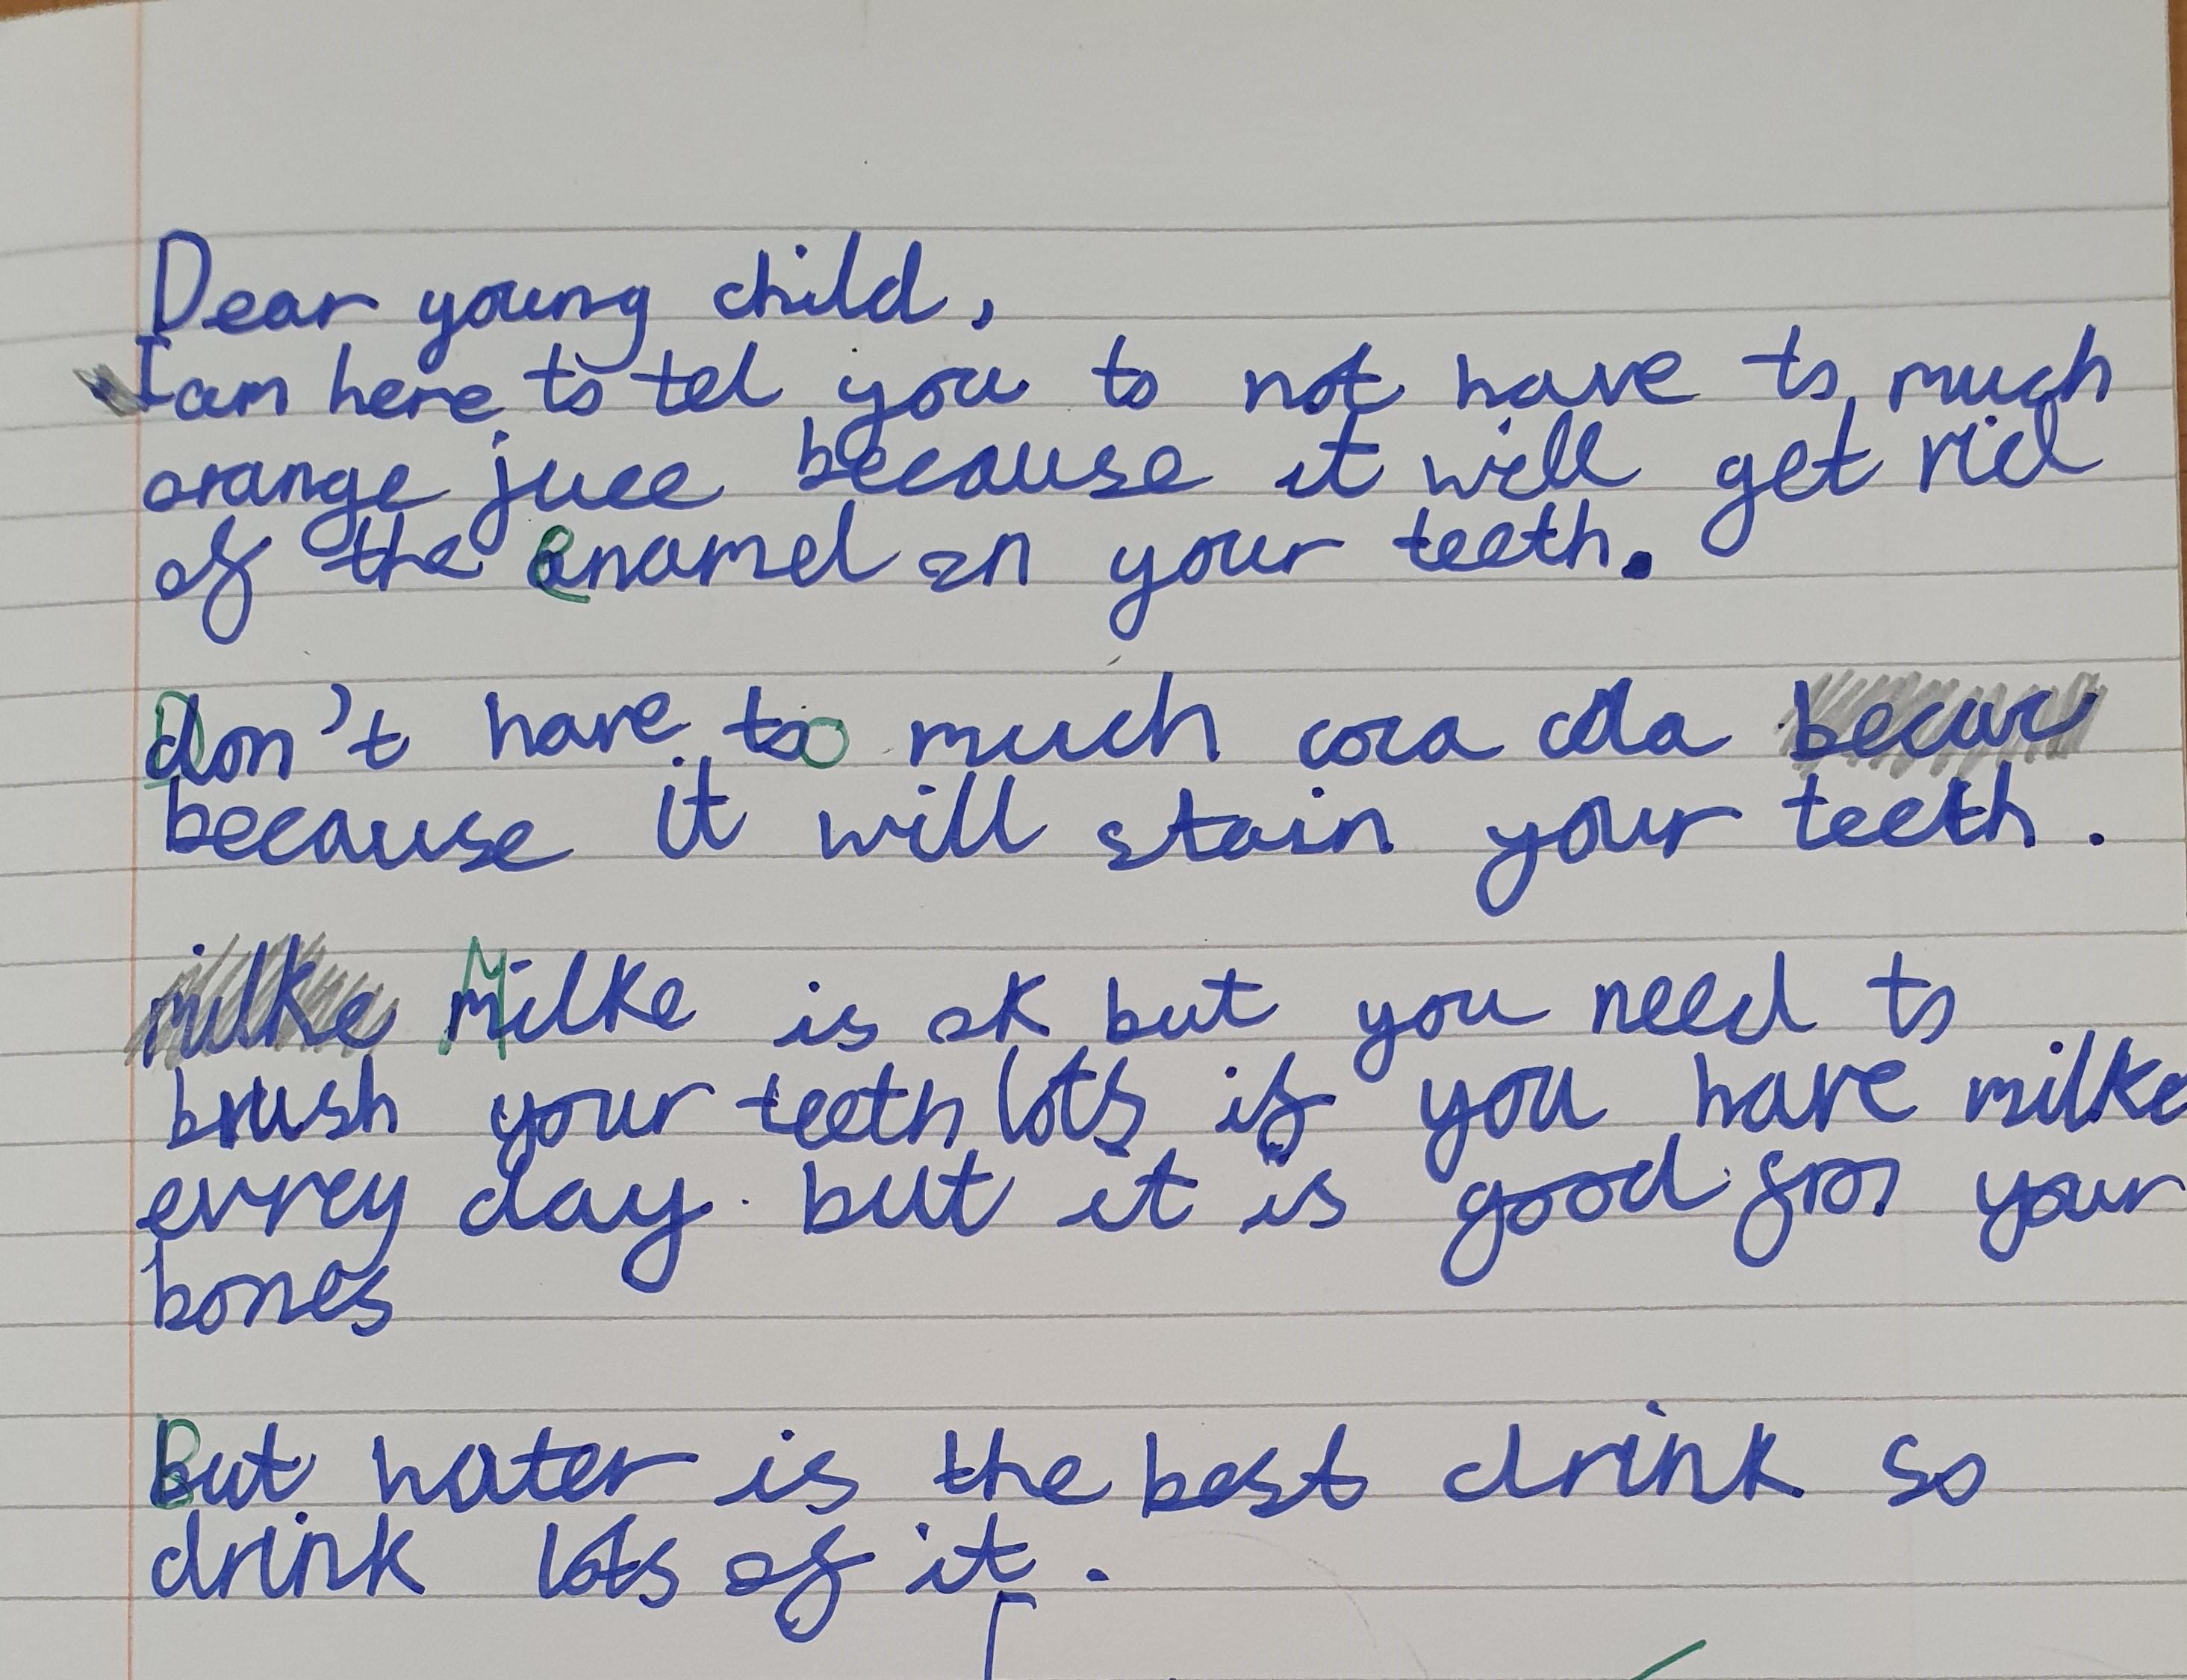 Dear young child,
I am here to tel you to not have to much
orange juce because it will get rid
of the enamel on your teeth.
Don't have too much coca cola becuc
because it will stain your teeth.
milke Milke is ok but you need to
brush your teeth lots if you have milke
evrey day. but it is good for your
bones
But water is the best drink so
drink lots of it.